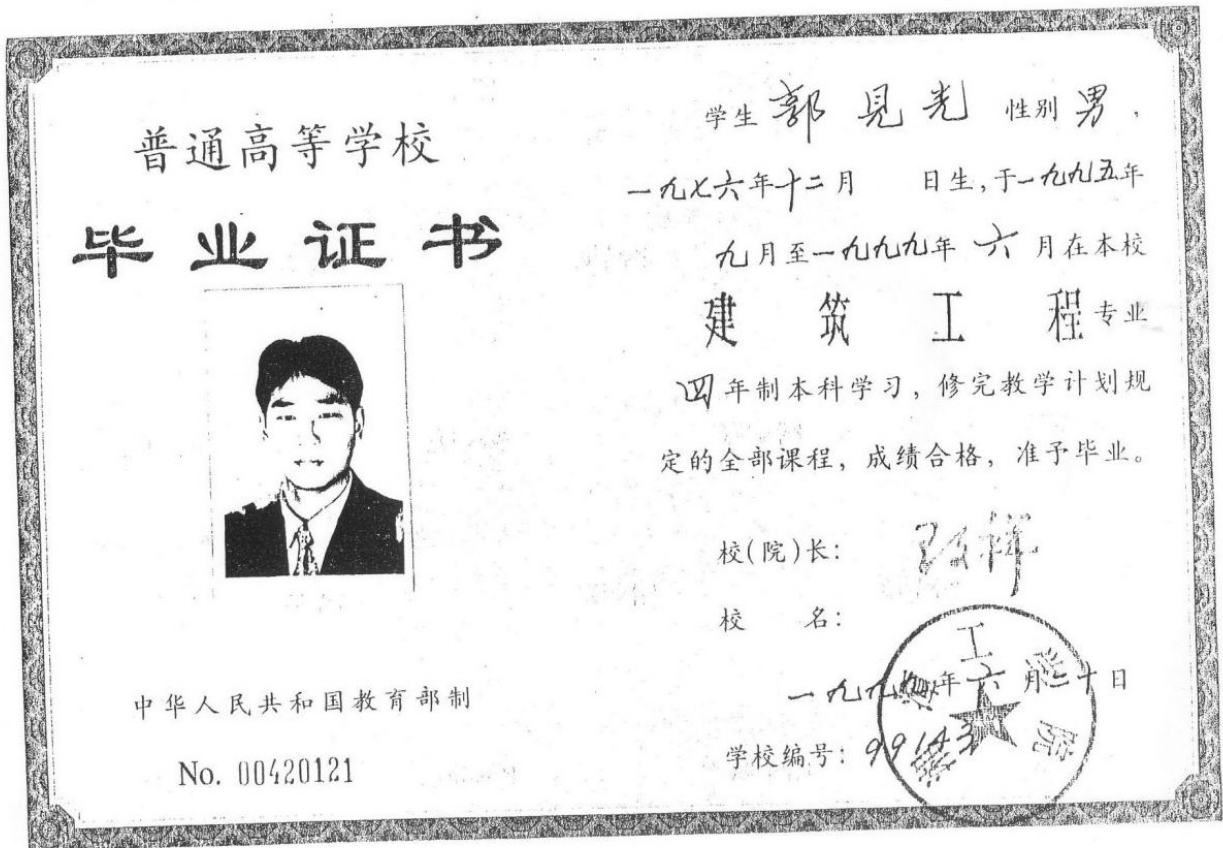 普通高等学校
毕业证书
中华人民共和国教育部制
No. 00420121
学生 郭见光 性别 男，
一九七六年十二月 日生，于一九九五年
九月至一九九九年 六 月在本校
建筑工程专业
四年制本科学习，修完教学计划规
定的全部课程，成绩合格，准予毕业。
校（院）长：
校 名：
工学院
一九九九年六月二十日
学校编号：99143